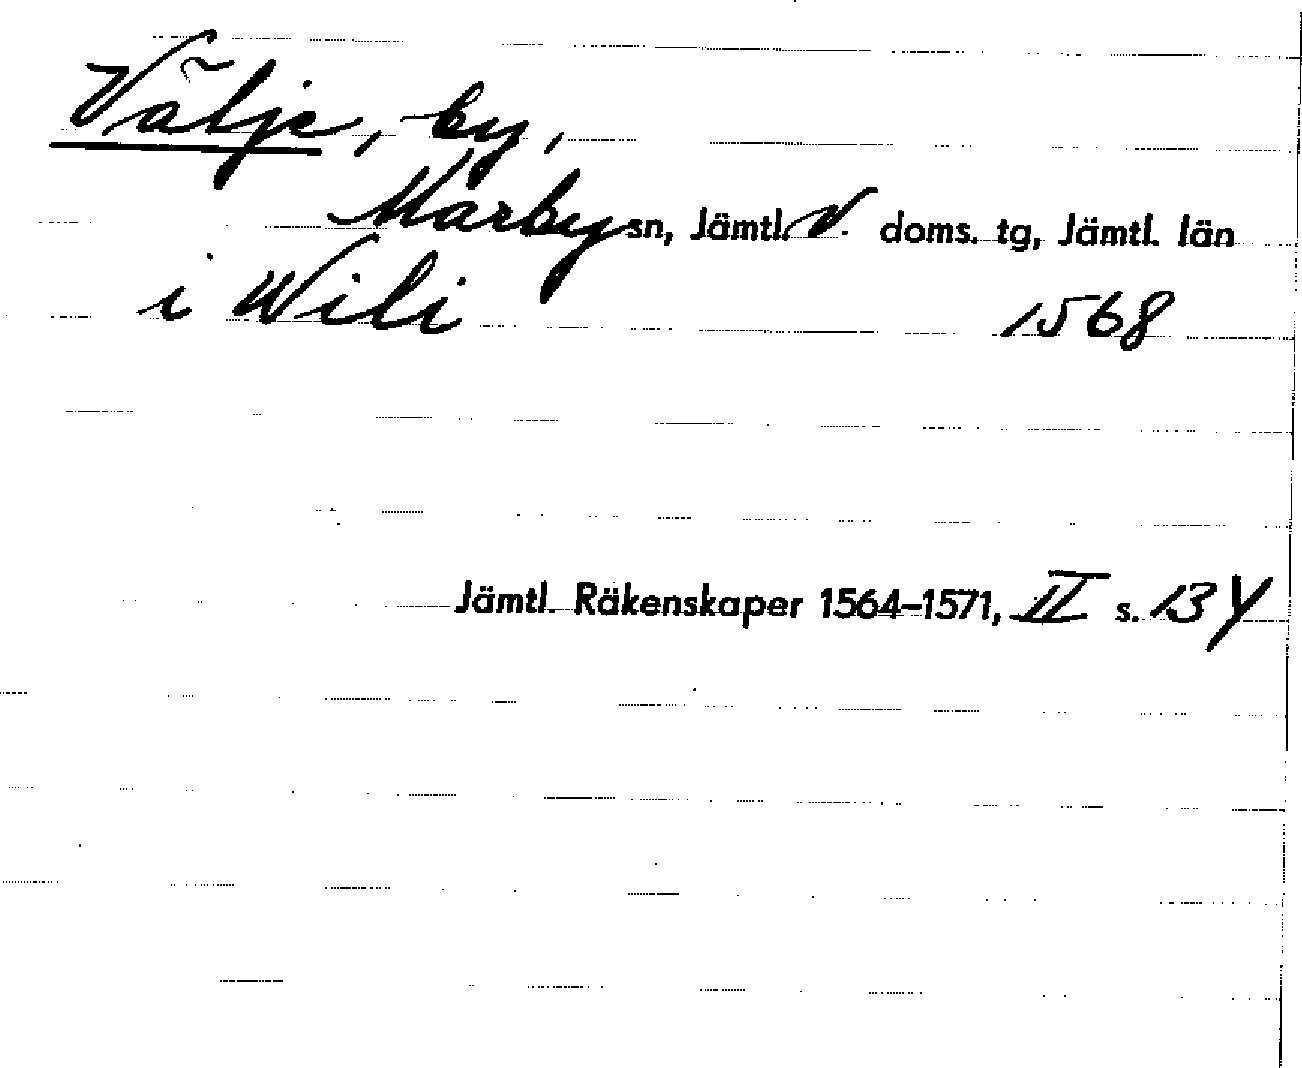 Välje, by,
Marby sn, Jämtl. V. doms. tg, Jämtl. län
i Wili 1568
Jämtl. Räkenskaper 1564–1571, II s. 134